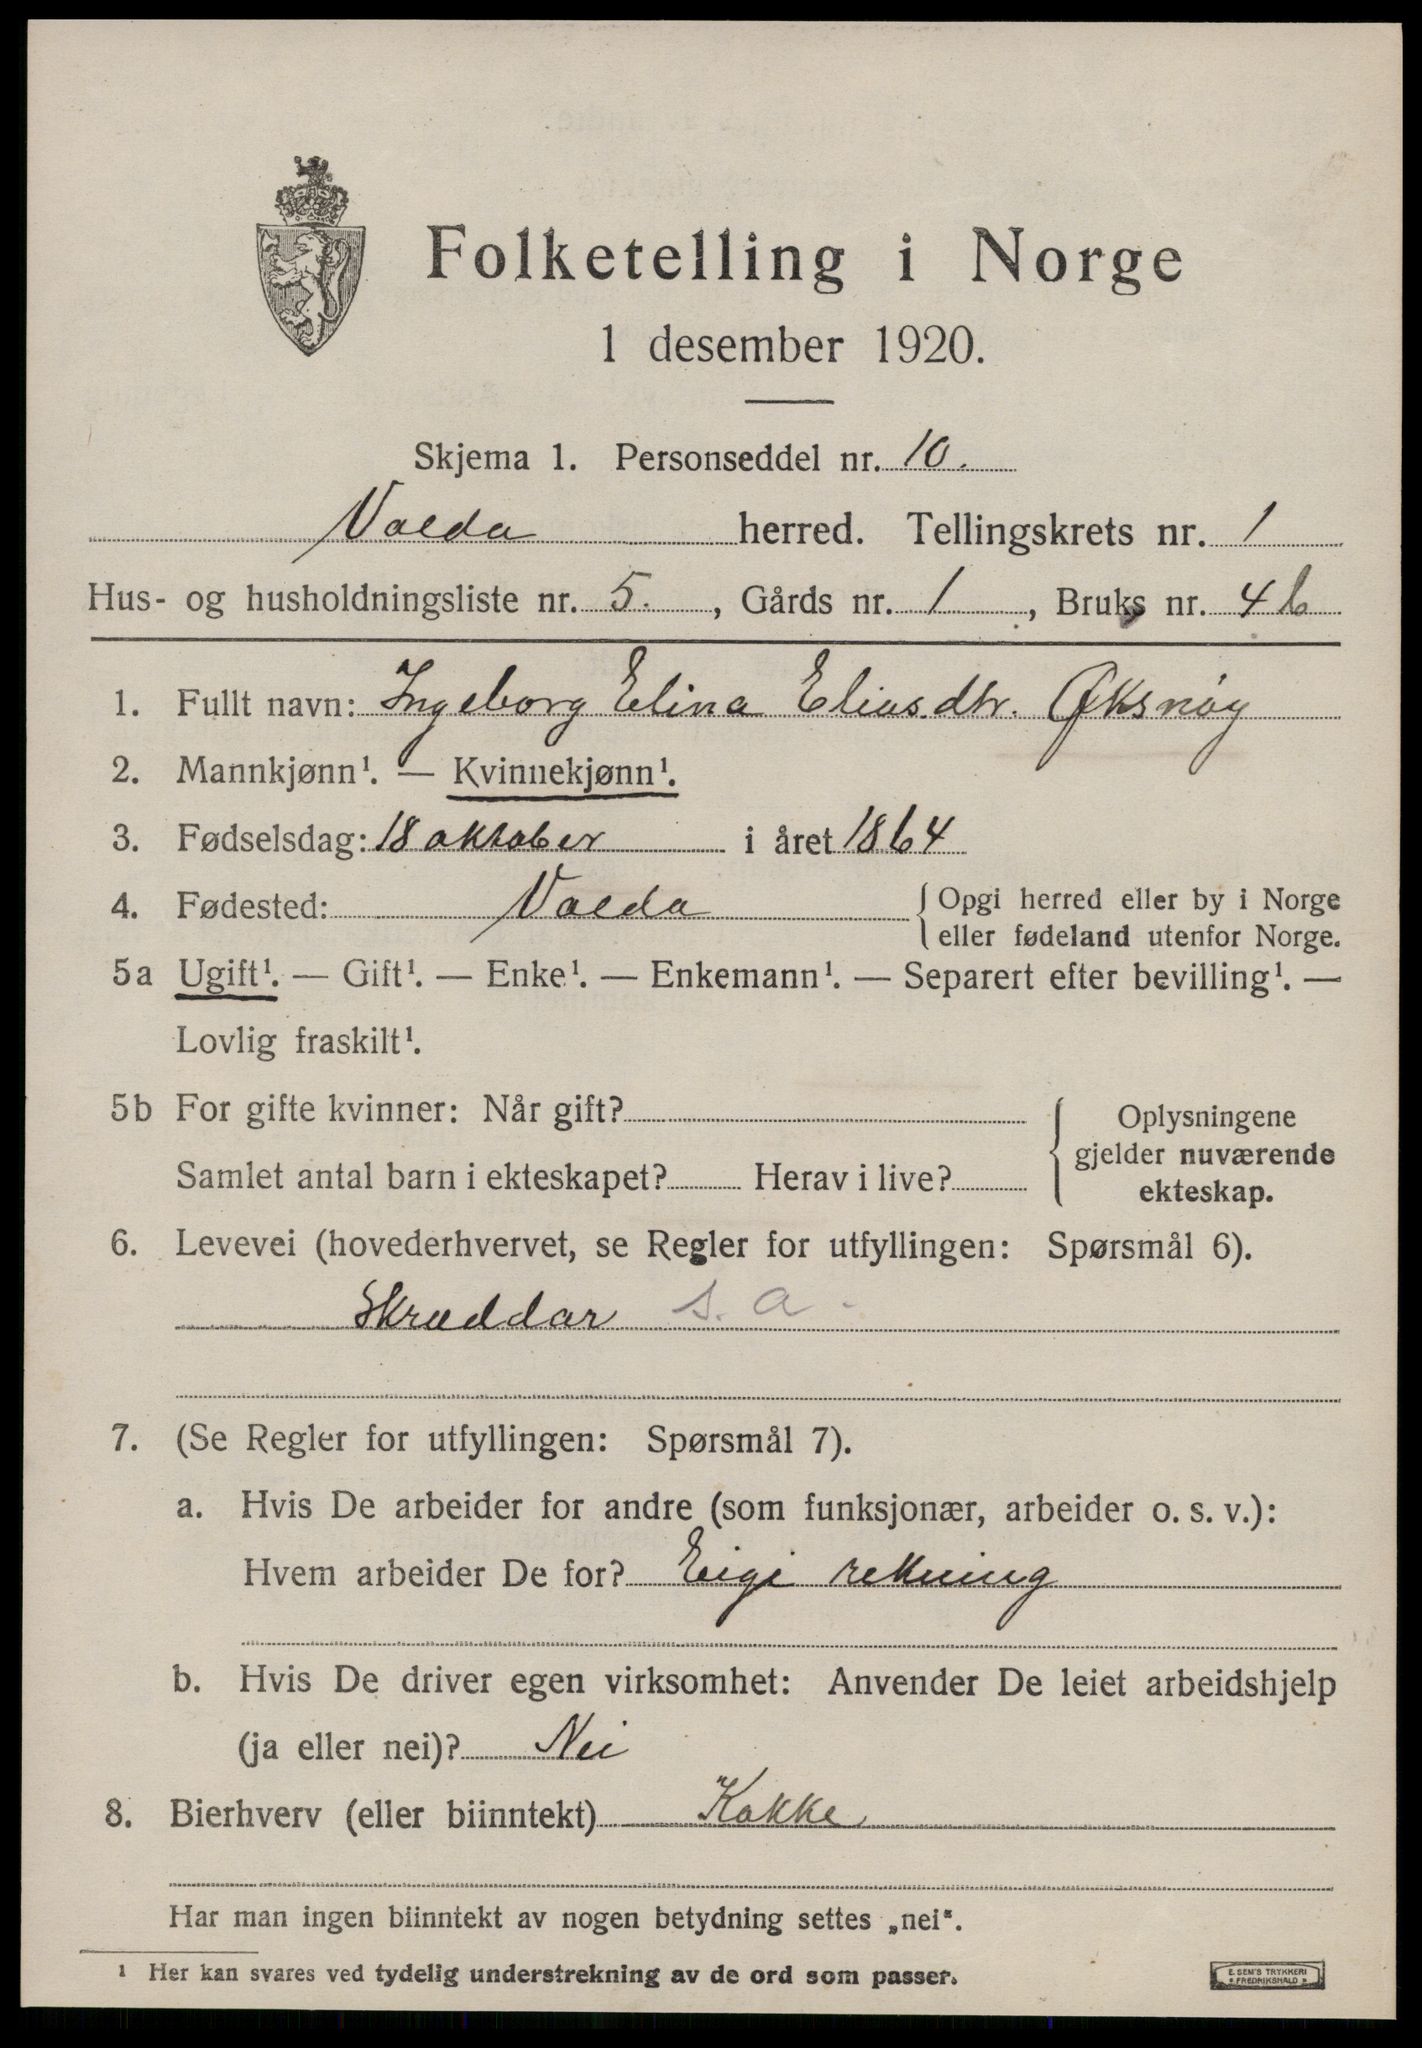 Folketelling i Norge
1 desember 1920.
Skjema 1. Personseddel nr. 10.
Volda herred. Tellingskrets nr. 1
Hus- og husholdningsliste nr. 5., Gårds nr. 1, Bruks nr. 4 b
1. Fullt navn: Ingeborg Elina Eliasdtr. Øksnøy
2. Mannkjønn¹. — Kvinnekjønn¹.
3. Fødselsdag: 18 oktober i året 1864
4. Fødested: Volda { Opgi herred eller by i Norge
eller fødeland utenfor Norge.
5a Ugift¹. — Gift¹. — Enke¹. — Enkemann¹. — Separert efter bevilling¹. —
Lovlig fraskilt¹.
5b For gifte kvinner: Når gift?
Samlet antal barn i ekteskapet? Herav i live?
Oplysningene
gjelder nuværende
ekteskap.
6. Levevei (hovederhvervet, se Regler for utfyllingen: Spørsmål 6).
Skræddar s. a.
7. (Se Regler for utfyllingen: Spørsmål 7).
a. Hvis De arbeider for andre (som funksjonær, arbeider o. s. v.):
Hvem arbeider De for? Eigi rekning
b. Hvis De driver egen virksomhet: Anvender De leiet arbeidshjelp
(ja eller nei)? Nei
8. Bierhverv (eller biinntekt) Kokke
Har man ingen biinntekt av nogen betydning settes „nei".
¹ Her kan svares ved tydelig understrekning av de ord som passer.
E. SEM'S TRYKKERI
FREDRIKSHALD